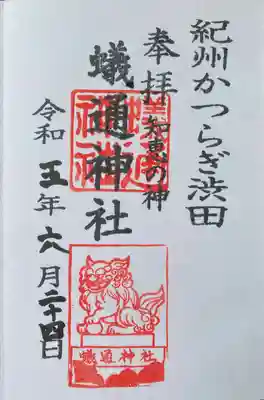 紀州かつらぎ渋田
奉拝
知恵の神
蟻通神社
令和五年六月二十四日
蟻通神社